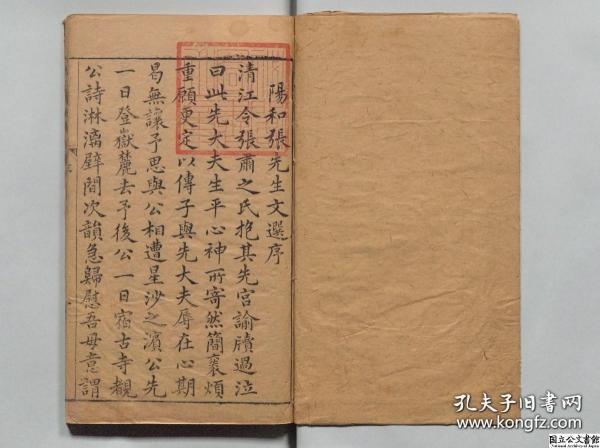 陽和張先生文選序
清江令張肅之氏抱其先宮諭牘過泣
曰此先大夫生平心神所寄然簡袠煩
重願更定以傳子與先大夫辱在心期
曷無讓予思與公相遭星沙之濱公先
一日登嶽麓去予後公一日宿古寺覩
公詩淋漓壁間次韻急歸慰吾母意謂
孔夫子旧书网
www.kongfz.com
国立公文書館
National Archives of Japan